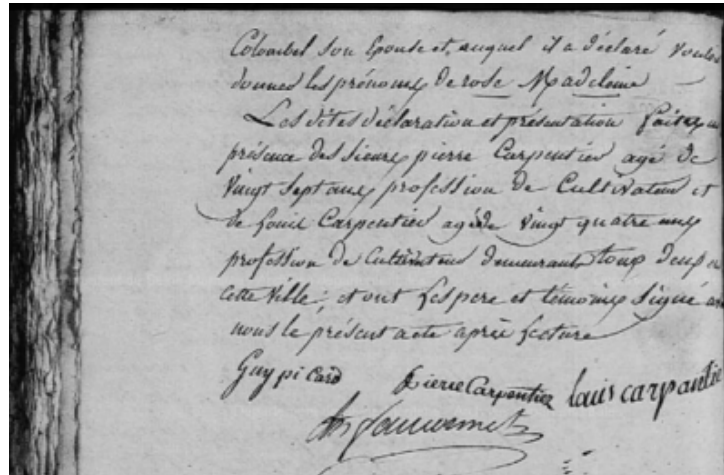 Colombel son épouse et, auquel il a déclaré vouloir
donner les prénoms de rose Madeleine
Les dites déclaration et présentation faites en
présence des sieurs pierre Carpentier agé de
vingt sept ans profession de Cultivateur et
de Louis Carpentier agé de vingt quatre ans
profession de Cultivateur demeurants tous deux en
cette ville; et ont les pere et témoins signé avec
nous le présent acte après lecture
Guy picard Pierre Carpentier louis carpantie